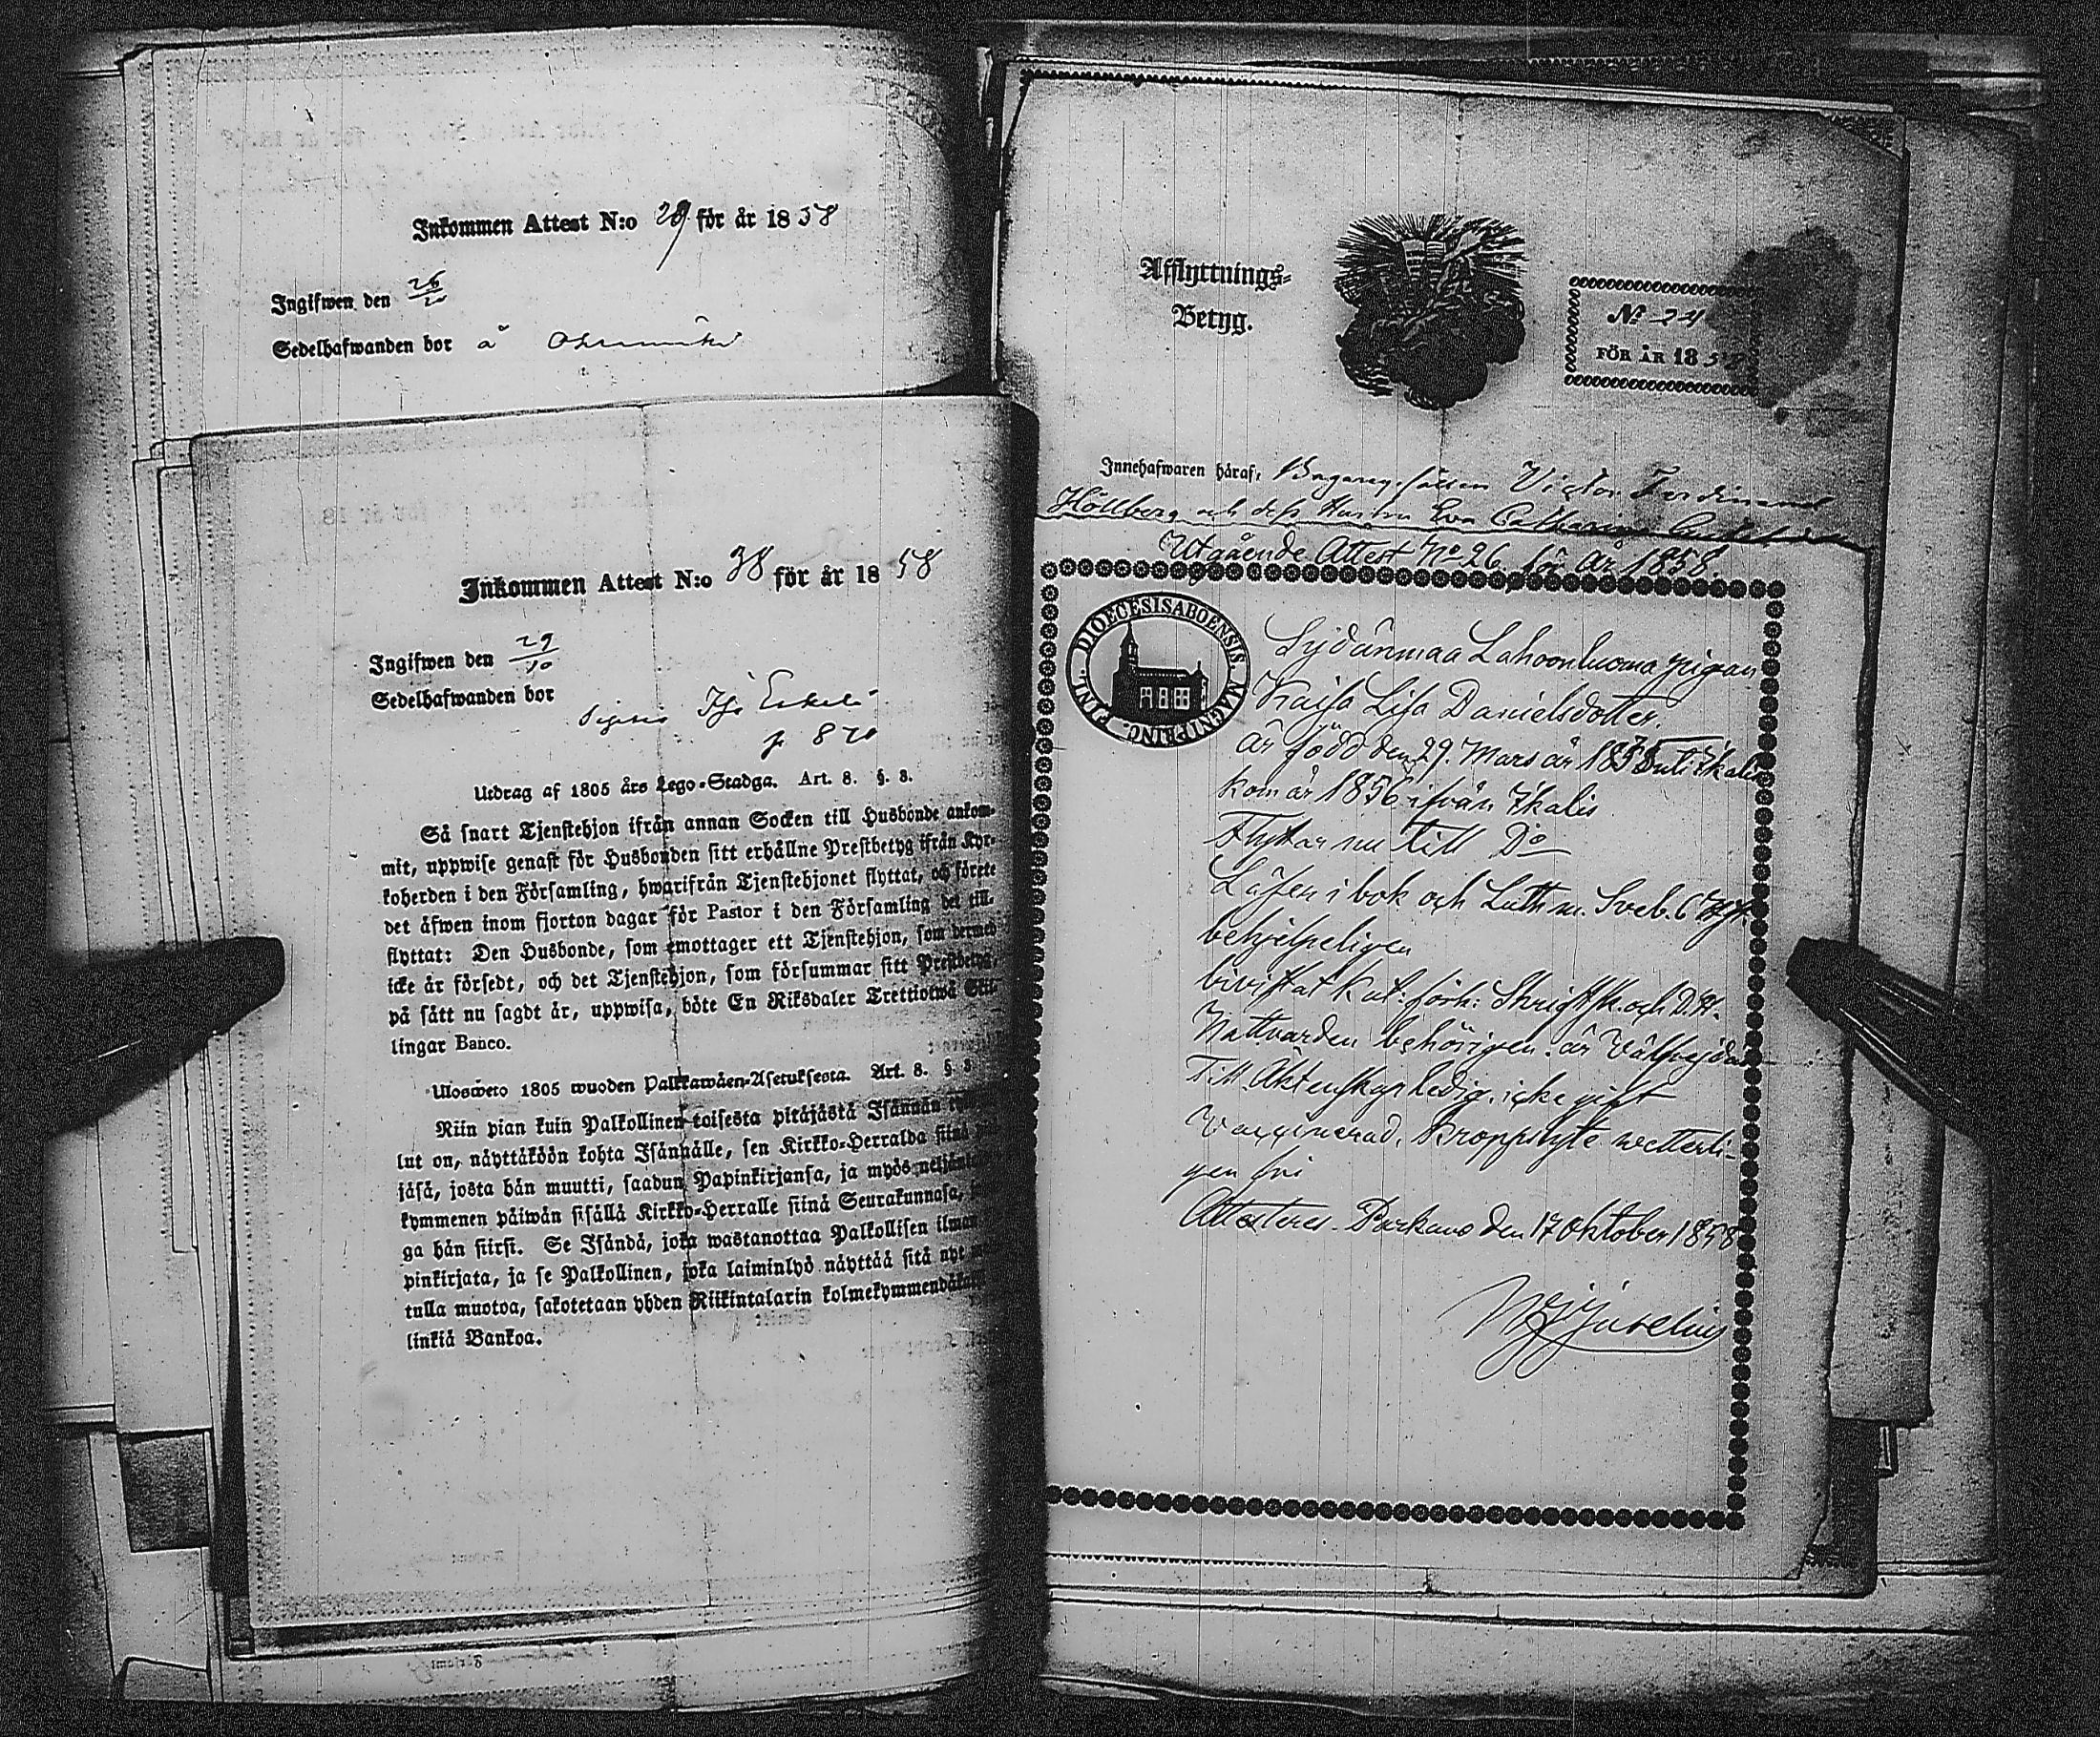 Inkommen Attest N:o 29 för år 1858
Ingifwen den 26/10
Sedelhafwanden bor å
Inkommen Attest N:o 38 för år 1858
Ingifwen den 29/10
Sedelhafwanden bor
p 870
Utdrag af 1805 års Lego-Stadga. Art. 8. §. 8.
Så snart Tjenstehjon ifrån annan Socken till Husbonde ankom-
mit, uppwise genast för Husbonden sitt erhållne Prestbetyg ifrån Kyr-
koherden i den Församling, hwarifrån Tjenstehjonet flyttat, och förete
det äfwen inom fjorton dagar för Pastor i den Församling det till-
flyttat: Den Husbonde, som emottager ett Tjenstehjon, som dermed
icke är försedt, och det Tjenstehjon, som försummar sitt Prestbetyg,
på sätt nu sagdt är, uppwisa, böte En Riksdaler Trettiotwå Skil-
lingar Banco.
Ulosweto 1805 wuoden Palkkawäen-Asetuksesta. Art. 8. § 8
Niin pian kuin Palkollinen toisesta pitäjästä Isännän
lut on, näyttäköön kohta Isännälle, sen Kirkko-Herralda siinä
jäsä, josta hän muutti, saadun Papinkirjansa, ja myös neljäntoista
kymmenen päiwän sisällä Kirkko-Herralle siinä Seurakunnasa,
ga hän siirsi. Se Isändä, joka wastanottaa Palkollisen ilman
pinkirjata, ja se Palkollinen, joka laiminlyö näyttää sitä nyt
tulla muotoa, sakotetaan yhden Riikintalarin kolmekymmendäkaksi
linkiä Bankoa.
Afflyttnings-
Betyg.
№ 24
FÖR ÅR 185
Innehafwaren häraf, Victor Ferdinand
Höllberg och dess Hustru Eva Catharina
Utgående Attest No 26 för År 1858.
DIOECESIS ABOENSIS. MAGNI PRINC. FINL.
Sydänmaa Lahoonluoma pigan
Kaisa Lisa Danielsdotter.
är född den 29. Mars år 183 uti Ikalis
kom år 1856 ifrån Ikalis
Flyttar nu till Do
Läser i bok och Luth m. Sveb.
behjelpeligen
bivistat Kat. förh: Skrift K. och D. H.
Nattvarden behörigen. är välfrejdad
Till Äktenskap ledig. icke gift
Vaccinerad. Kroppslyte wetterli-
gen fri
Attesterer. Parkano den 17 oktober 1858